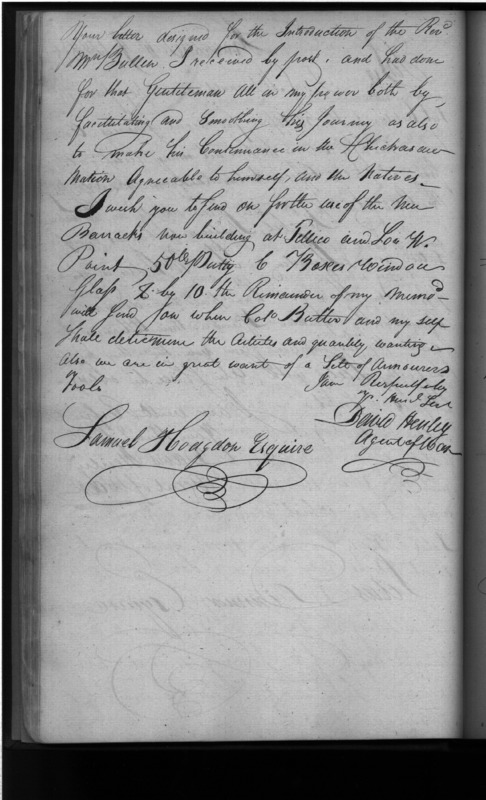 Your letter designed for the Introduction of the Revd
Mr Bullen I received by post, and had done
for that Gentleman All in my power both by
facilitating and Smoothing his Journey as also
to make his Continuance in the Chickasaw
Nation Agreeable to himself, and the Natives
I wish you to send on for the use of the New
Barracks now building at Tellico and So W.
Point, 50 lbs Putty 6 Boxes Window
Glass 8 by 10. the Remainder of my Memod
will send you when Colo Butler and my self
shall determine the Articles and quantity wanting
Also we are in great want of a Sett of Armourers
Tools I am Respectfully
Yr. Humb Sert
David Henley
Agent of War
Samuel Hodgdon Esquire